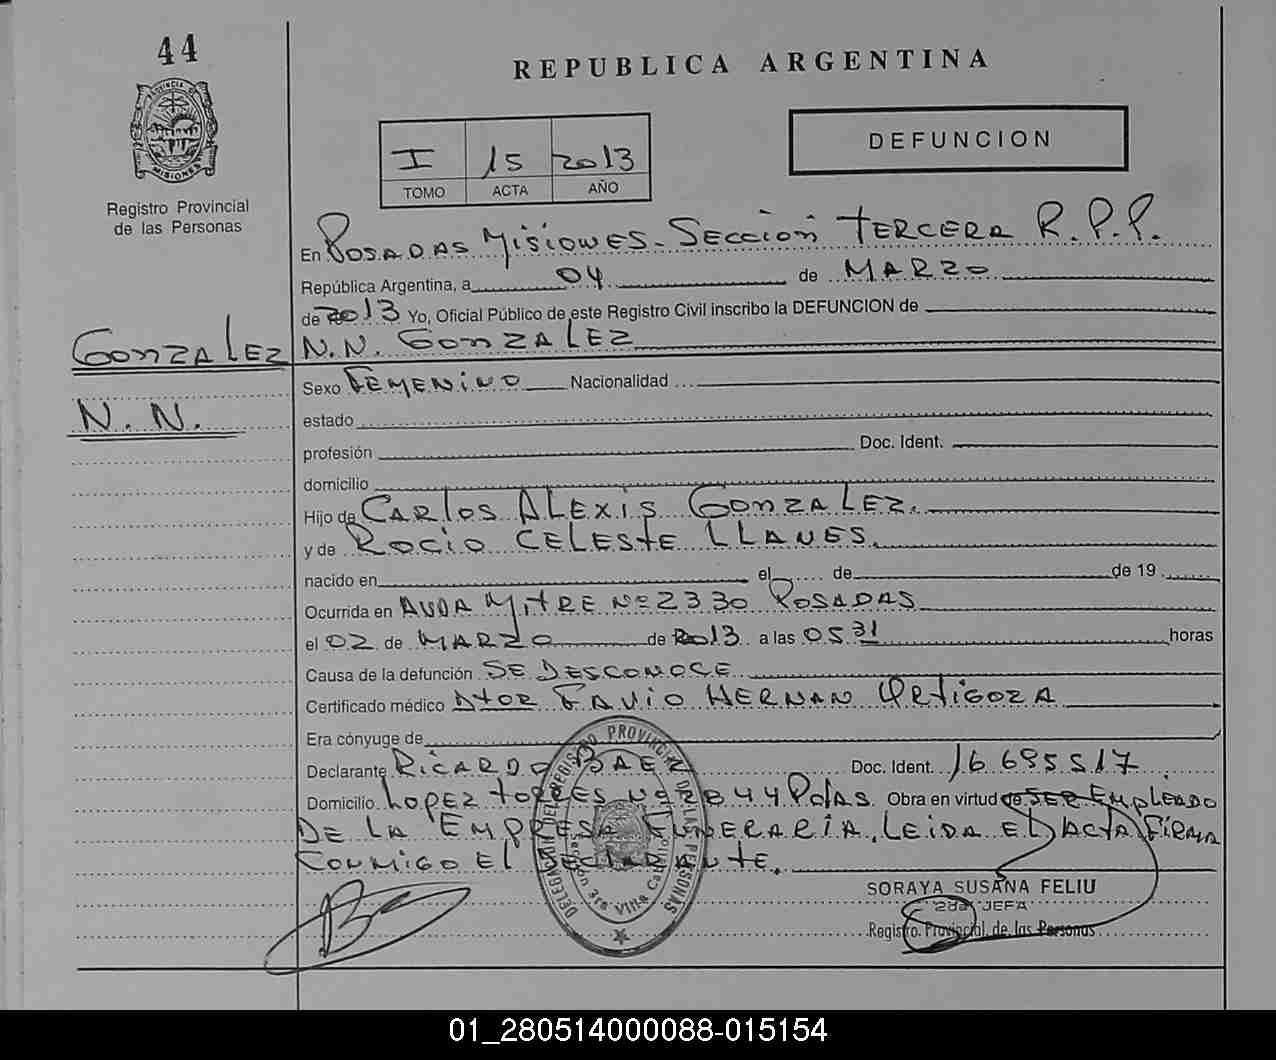 44
REPUBLICA ARGENTINA
PROVINCIA DE MISIONES
Registro Provincial
de las Personas
I 15 2013
TOMO ACTA AÑO
DEFUNCION
En POSADAS MISIONES - SECCION TERCERA R.P.P.
República Argentina, a 04 de MARZO
de 2013 Yo, Oficial Público de este Registro Civil inscribo la DEFUNCION de
GONZALEZ N.N. GONZALEZ
Sexo FEMENINO Nacionalidad
N.N.
estado
profesión Doc. Ident.
domicilio
Hijo de CARLOS ALEXIS GONZALEZ.
y de ROCIO CELESTE LLANES.
nacido en el de de 19
Ocurrida en AVDA MITRE Nº 2330 POSADAS
el 02 de MARZO de 2013 a las 05 31 horas
Causa de la defunción SE DESCONOCE
Certificado médico DTOR FAVIO HERNAN ORTIGOZA
Era cónyuge de
Declarante RICARDO BAEZ Doc. Ident. 16.695517
Domicilio LOPEZ TORRES Nº 2844 Pdas. Obra en virtud de SER EMPLEADO
DE LA EMPRESA FUNERARIA, LEIDA EL ACTA FIRMA
CONMIGO EL DECLARANTE.
DELEGACION DEL REGISTRO PROVINCIAL DE LAS PERSONAS
3ra Villa Cabello
SORAYA SUSANA FELIU
2da JEFA
Registro Provincial de las Personas
01_280514000088-015154